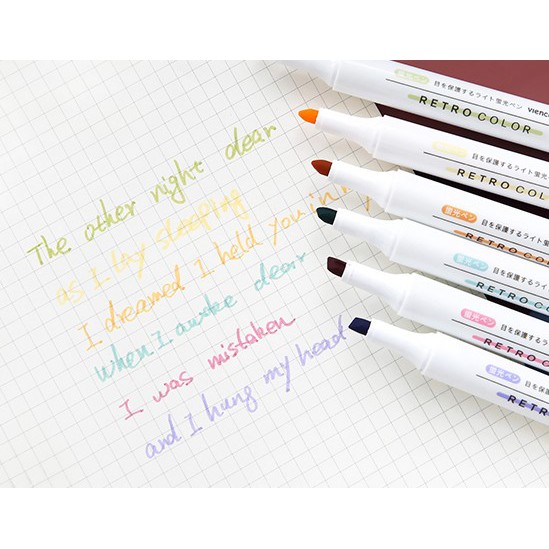 The other night dear
as I lay sleeping
I dreamed I held you in my
when I awoke dear
I was mistaken
and I hung my head
蛍光ペン 目を保護するライト蛍光ペン vienc
RETRO COLOR
目を保護するライト蛍光ペン
RETRO COLOR
蛍光ペン 目を保護するライト蛍光
RETRO COLOR
蛍光ペン 目を保護するライト
RETRO CO
蛍光ペン 目を保護するライ
RETRO C
蛍光ペン 目を保護する
RETRO